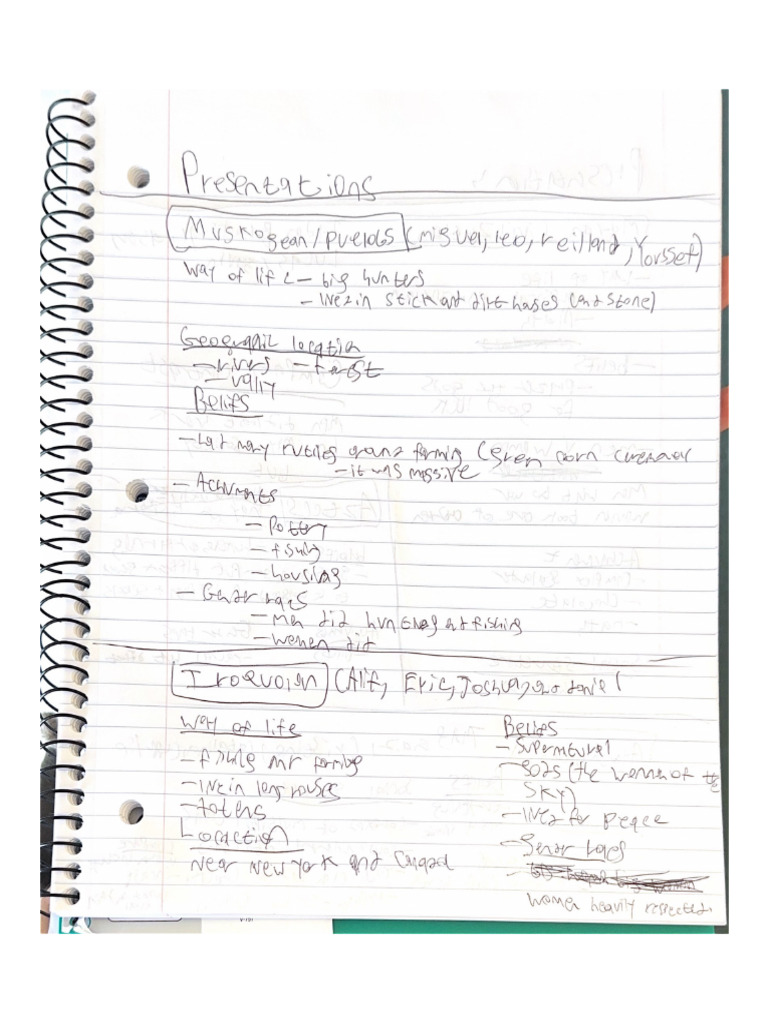 Presentations
Muskogean/Pueblos (Miguel, leo, reilland, Youssef)
Way of life - big hunters
- livez in stick and dirt hases (and stone)
Geographic location
- rivers - forest
- vally
Beliefs
- Had many rutiles around farming (Green corn
- it was massive
- Achivments
- Pottery
- fishing
- housing
- Genar roles
- Men did hunting and fishing
- women did
Iroquoian (Alif, Eric, Joshua, and daniel
Way of life
- fishing farming
- live in longhouses
- totems
Location
Near New York and Canada
Beliefs
- Supernaturel
- Gods (the woman of the
Sky)
- livez for peace
- Genar roles
women heavily respected